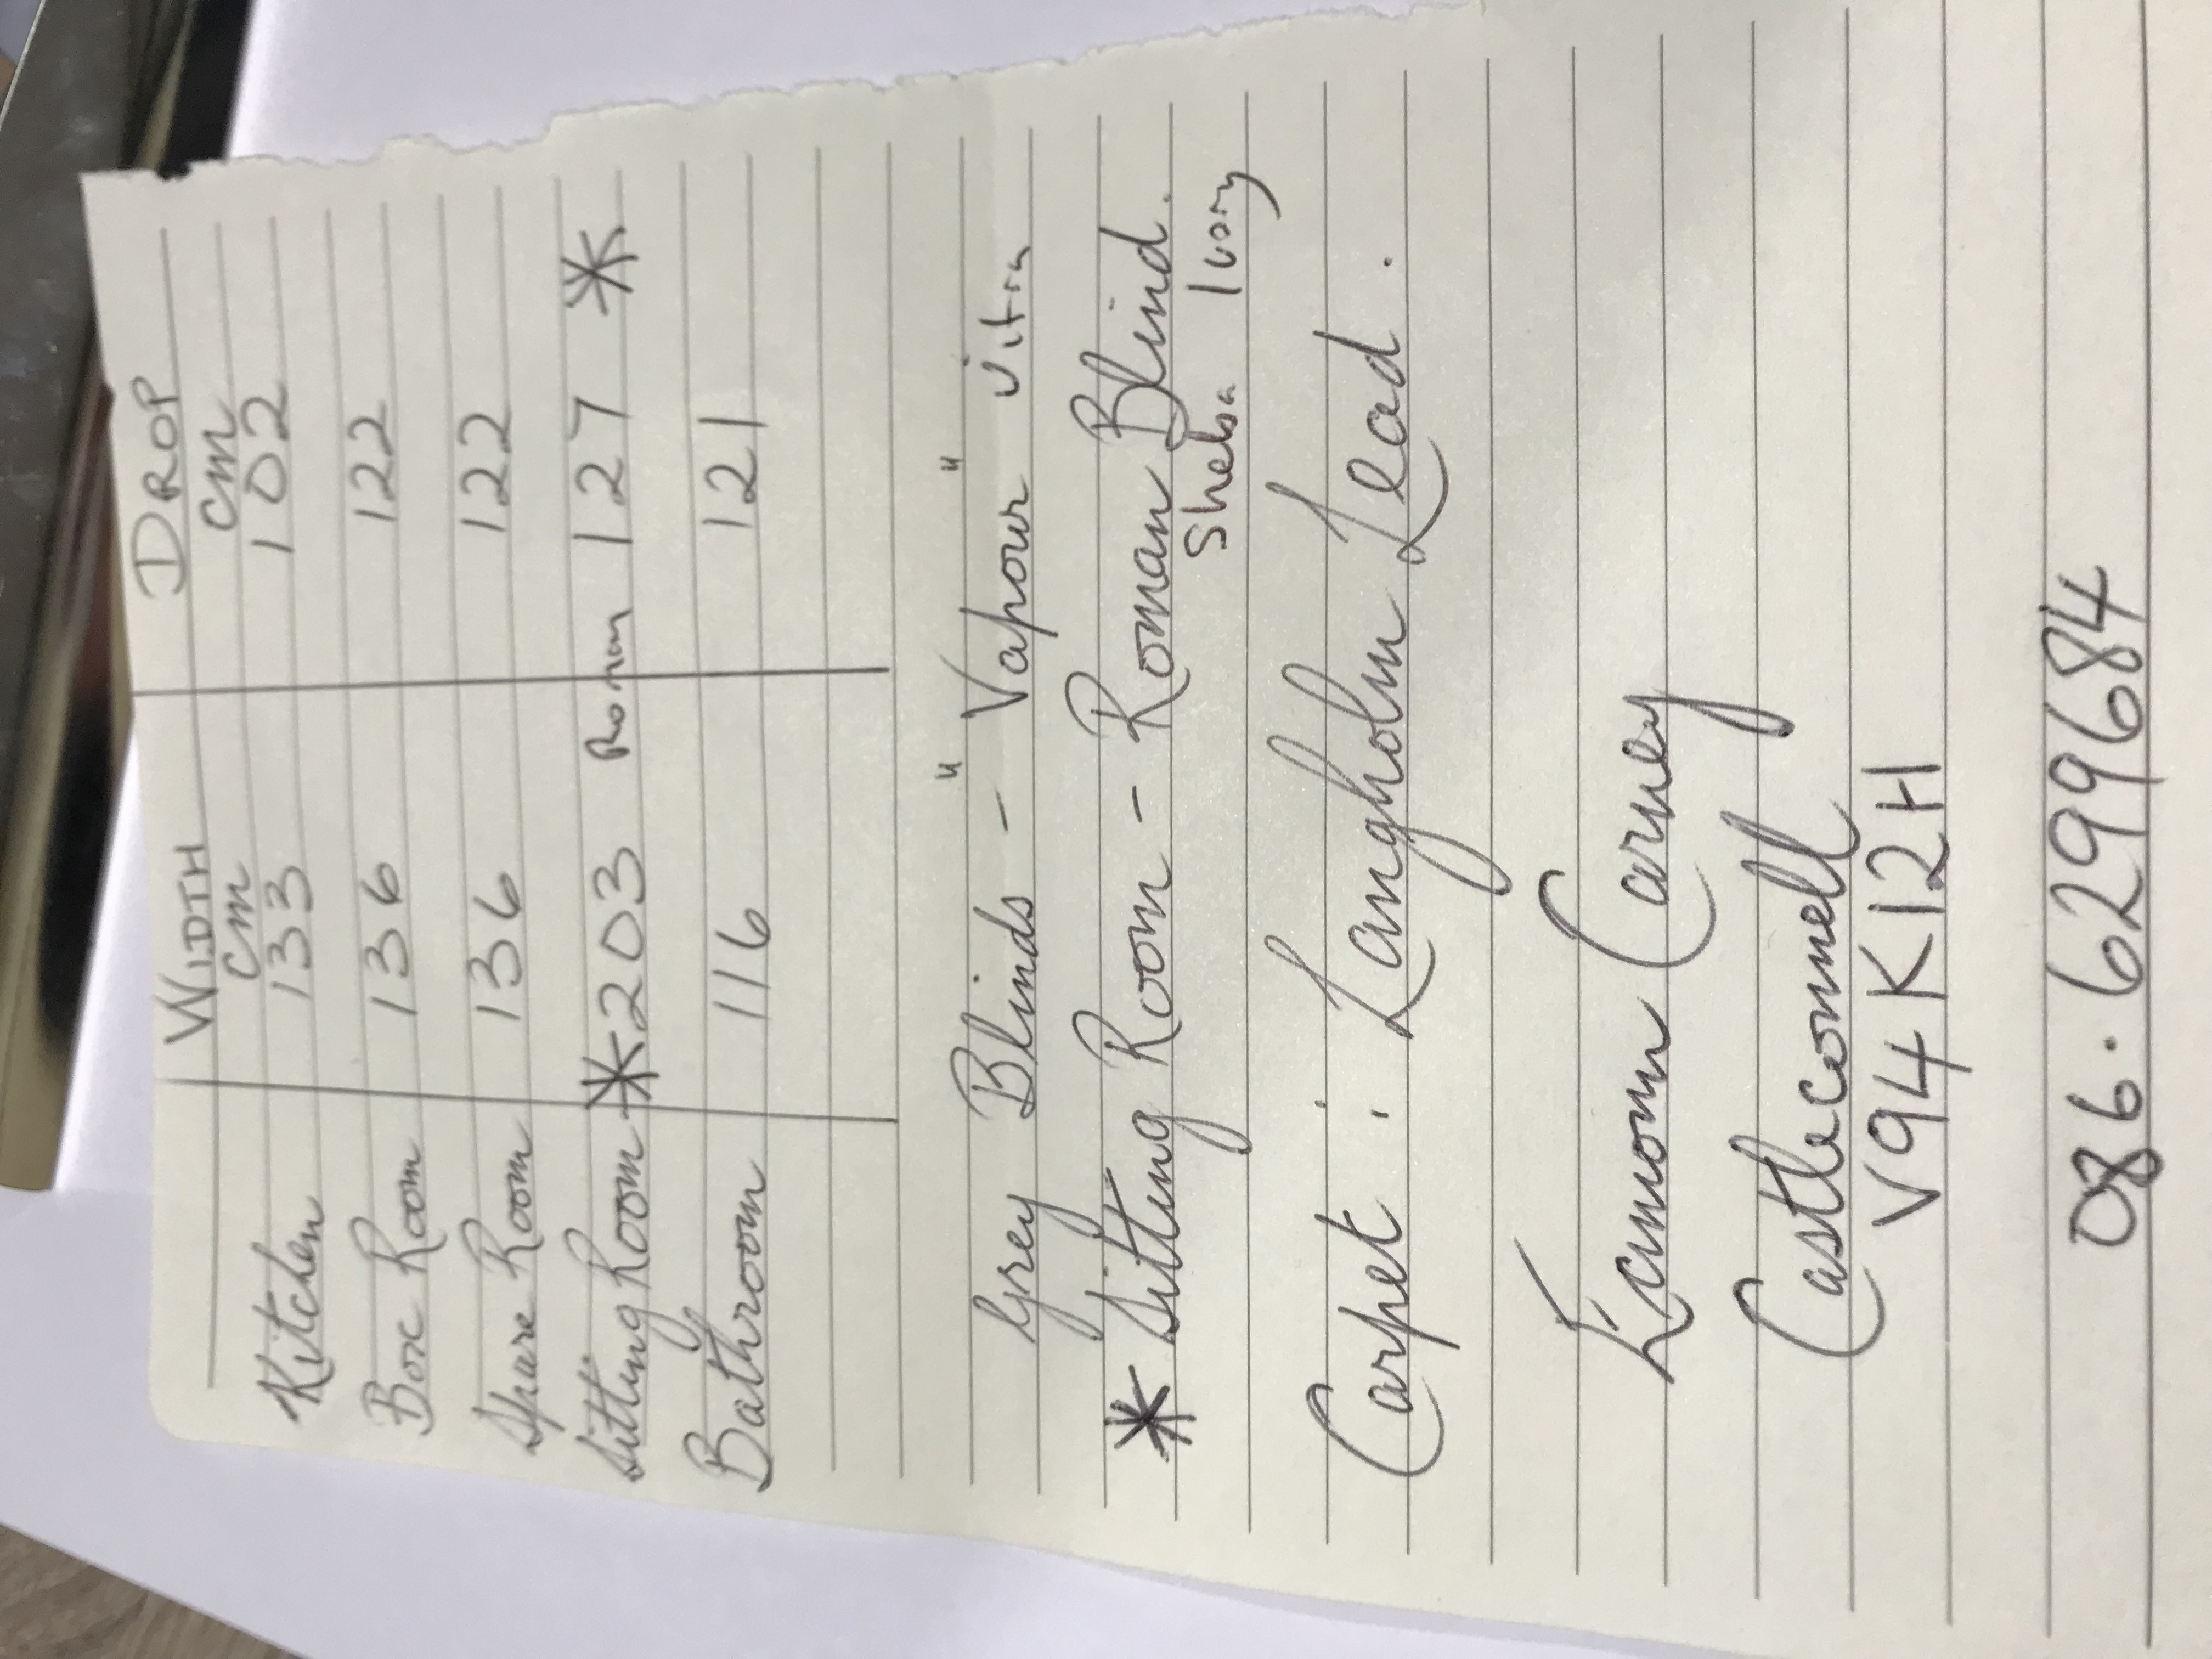 WIDTH DROP
cm cm
Kitchen 133 102
Box Room 136 122
Spare Room 136 122
Sitting Room * 203 Roman 127 *
Bathroom 116 121
Grey Blinds - "Vapour" Vitra
* Sitting Room - Roman Blind.
Sheba Ivory
Carpet : Langholm Lead.
Eamonn Carney
Castleconnell
V94 K12H
086. 6299684